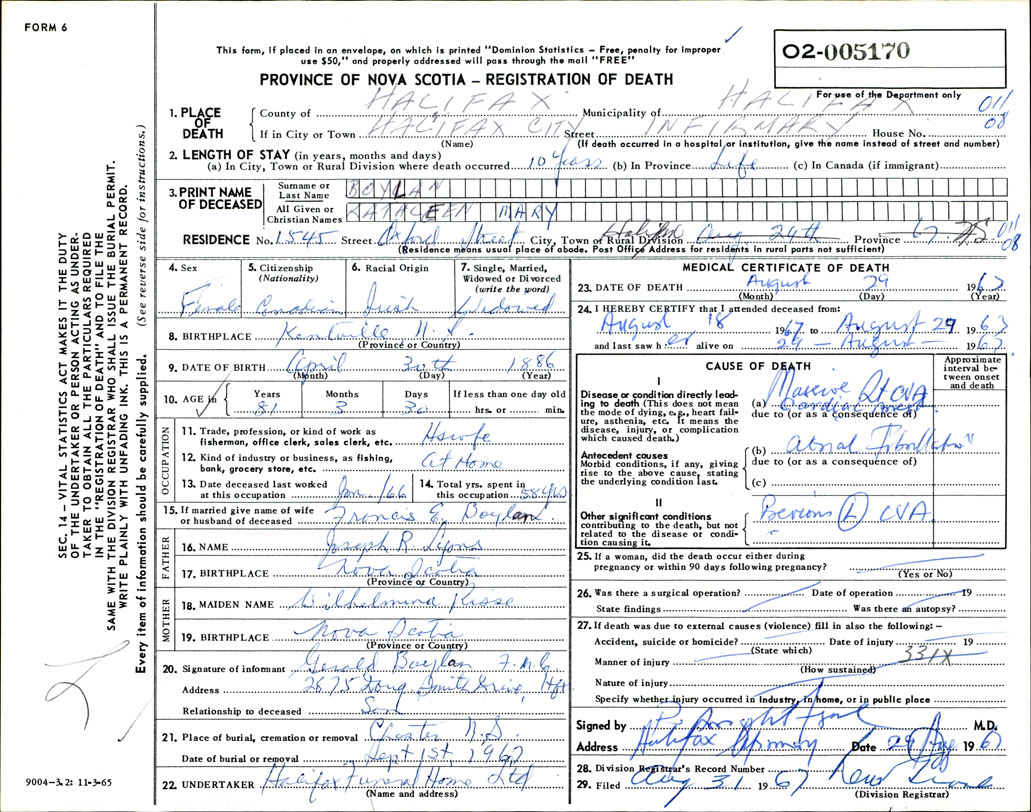 FORM 6
This form, if placed in an envelope, on which is printed "Dominion Statistics – Free, penalty for improper
use $50," and properly addressed will pass through the mail "FREE"
O2-005170
PROVINCE OF NOVA SCOTIA – REGISTRATION OF DEATH
For use of the Department only
1. PLACE OF DEATH
County of HALIFAX Municipality of HALIFAX 011
If in City or Town HALIFAX CITY Street INFIRMARY House No. 08
(Name) (If death occurred in a hospital or institution, give the name instead of street and number)
2. LENGTH OF STAY (in years, months and days)
(a) In City, Town or Rural Division where death occurred 10 Years (b) In Province Life (c) In Canada (if immigrant)
3. PRINT NAME OF DECEASED
Surname or Last Name BOYLAN
All Given or Christian Names KATHLEEN MARY
RESIDENCE No. 1545 Street Oxford Street City, Town or Rural Division Halifax Aug 29th Province 67 NS 011
(Residence means usual place of abode. Post Office Address for residents in rural parts not sufficient) 08
4. Sex Female
5. Citizenship (Nationality) Canadian
6. Racial Origin Irish
7. Single, Married, Widowed or Divorced (write the word) Widowed
8. BIRTHPLACE Kentville N.S.
(Province or Country)
9. DATE OF BIRTH April 30th 1886
(Month) (Day) (Year)
10. AGE in Years 81 Months 3 Days 30 If less than one day old hrs. or min.
OCCUPATION
11. Trade, profession, or kind of work as fisherman, office clerk, sales clerk, etc. Hswfe
12. Kind of industry or business, as fishing, bank, grocery store, etc. At Home
13. Date deceased last worked at this occupation Jan /66
14. Total yrs. spent in this occupation 58 yrs
15. If married give name of wife or husband of deceased Francis E. Boylan
FATHER
16. NAME Joseph R. Lyons
17. BIRTHPLACE Nova Scotia
(Province or Country)
MOTHER
18. MAIDEN NAME Wilhelmina
19. BIRTHPLACE Nova Scotia
(Province or Country)
20. Signature of informant Gerald Boylan
Address 2875 Doug Smith Drive, Hfx
Relationship to deceased Son
21. Place of burial, cremation or removal Chester N.S.
Date of burial or removal Sept 1st, 1967
22. UNDERTAKER Halifax Funeral Home Ltd
(Name and address)
MEDICAL CERTIFICATE OF DEATH
23. DATE OF DEATH August 29 1967
(Month) (Day) (Year)
24. I HEREBY CERTIFY that I attended deceased from:
August 18 1967 to August 29 1967
and last saw h er alive on 29 – August – 1967
CAUSE OF DEATH
Approximate interval between onset and death
I
Disease or condition directly leading to death (This does not mean the mode of dying, e.g., heart failure, asthenia, etc. It means the disease, injury, or complication which caused death.)
(a) Massive Rt CVA
Cardiac arrest
due to (or as a consequence of)
Antecedent causes
Morbid conditions, if any, giving rise to the above cause, stating the underlying condition last.
(b) Atrial Fibrillation
due to (or as a consequence of)
(c)
II
Other significant conditions contributing to the death, but not related to the disease or condition causing it.
Previous (L) CVA
25. If a woman, did the death occur either during
pregnancy or within 90 days following pregnancy?
(Yes or No)
26. Was there a surgical operation? Date of operation 19
State findings Was there an autopsy?
27. If death was due to external causes (violence) fill in also the following: –
Accident, suicide or homicide? Date of injury 19
(State which)
Manner of injury 331X
(How sustained)
Nature of injury
Specify whether injury occurred in industry, in home, or in public place
Signed by M.D.
Address Halifax Infirmary Date 29 Aug 1967
28. Division Registrar's Record Number
29. Filed Aug 31 1967
(Division Registrar)
SEC. 14 – VITAL STATISTICS ACT MAKES IT THE DUTY
OF THE UNDERTAKER OR PERSON ACTING AS UNDERTAKER TO OBTAIN ALL THE PARTICULARS REQUIRED
IN THE "REGISTRATION OF DEATH" AND TO FILE THE
SAME WITH THE DIVISION REGISTRAR WHO SHALL ISSUE THE BURIAL PERMIT.
WRITE PLAINLY WITH UNFADING INK. THIS IS A PERMANENT RECORD.
Every item of information should be carefully supplied. (See reverse side for instructions.)
9004-3.2: 11-3-65